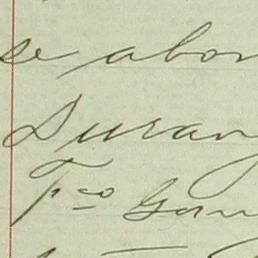 se abon
Duran
Fco Gon